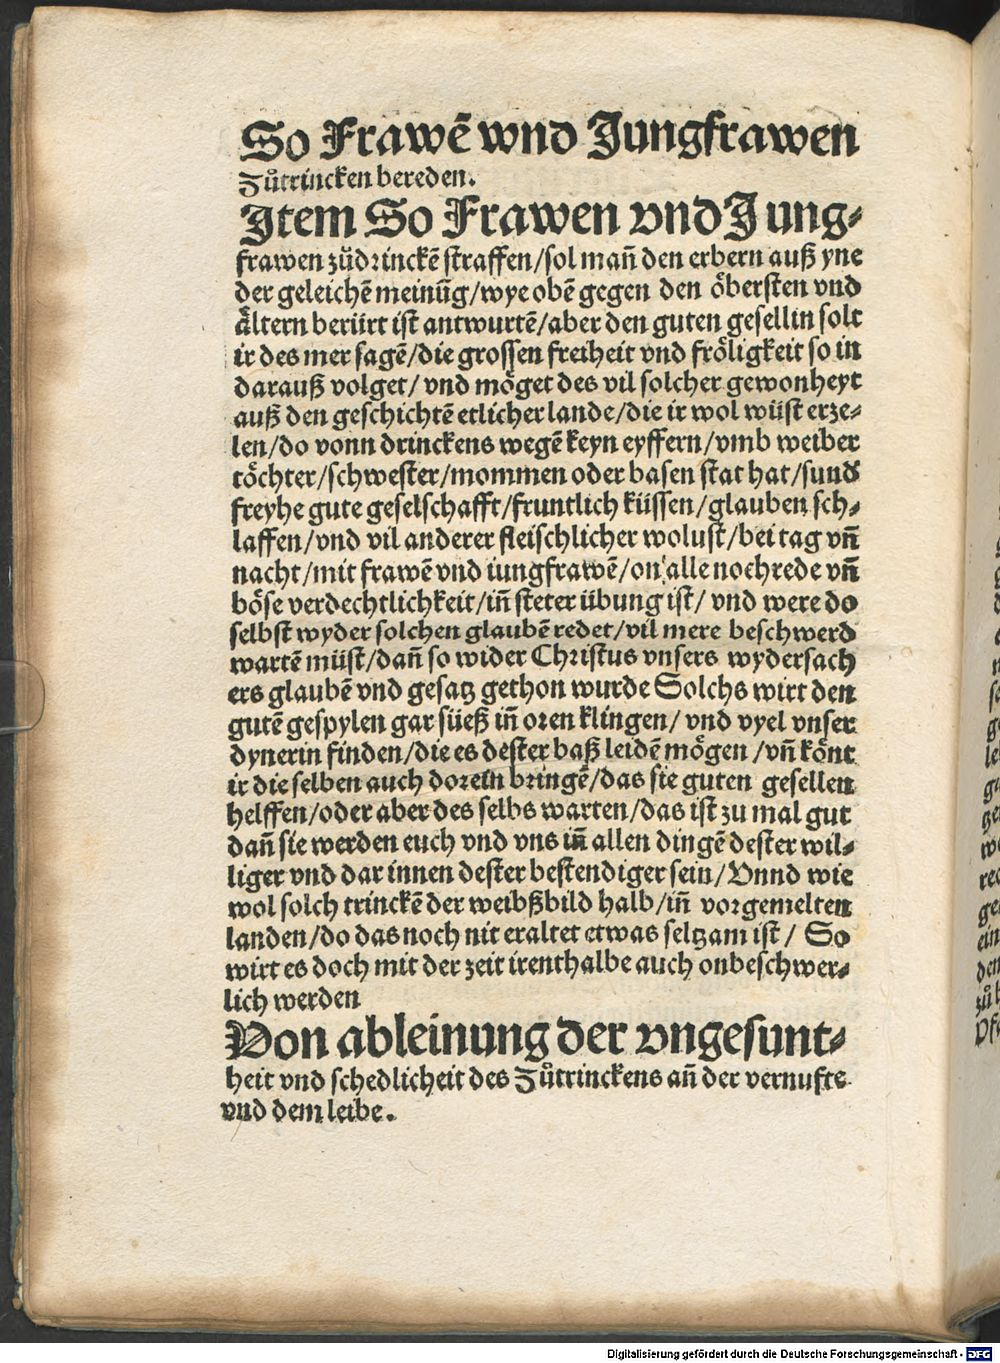 So Frawē wnd Jungfrawen
Zůtrincken bereden.
Jtem So Frawen vnd Jung⸗
frawen zůdrinckē straffen/sol man̄ den erbern auß yne
der geleichē meinūg/wye obē gegen den öbersten vnd
ältern berürt ist antwurtē/aber den guten gesellin solt
ir des mer sagē/die grossen freiheit vnd fröligkeit so in
darauß volget/ vnd möget des vil solcher gewonheyt
auß den geschichtē etlicher lande/die ir wol wüst erze⸗
len/do vonn drinckens wegē keyn eyffern/vmb weiber
töchter/schwester/mommen oder basen stat hat/sund̄
freyhe gute geselschafft/fruntlich küssen/glauben sch⸗
laffen/vnd vil anderer fleischlicher wolust/bei tag vn̄
nacht/mit frawē vnd iungfrawē/on alle nochrede vn̄
böse verdechtlichkeit/in̄ steter übung ist/ vnd were do
selbst wyder solchen glaubē redet/vil mere beschwerd
wartē müst/dan̄ so wider Christus vnsers wydersach
ers glaubē vnd gesatz gethon wurde Solchs wirt den
gutē gespylen gar süeß in̄ oren klingen/ vnd vyel vnser
dynerin finden/die es dester baß leidē mögen /vn̄ könt
ir die selben auch dorein bringē/das sie guten gesellen
helffen/oder aber des selbs warten/das ist zu mal gut
dan̄ sie werden euch vnd vns in̄ allen dingē dester wil⸗
liger vnd dar innen dester bestendiger sein/Vnnd wie
wol solch trinckē der weibßbild halb/in̄ vorgemelten
landen/do das noch nit eraltet etwas seltzam ist/ So
wirt es doch mit der zeit irenthalbe auch onbeschwer⸗
lich werden
Von ableinung der vngesunt⸗
heit vnd schedlicheit des Zůtrinckens an̄ der vernufte
vnd dem leibe.
Digitalisierung gefördert durch die Deutsche Forschungsgemeinschaft - DFG